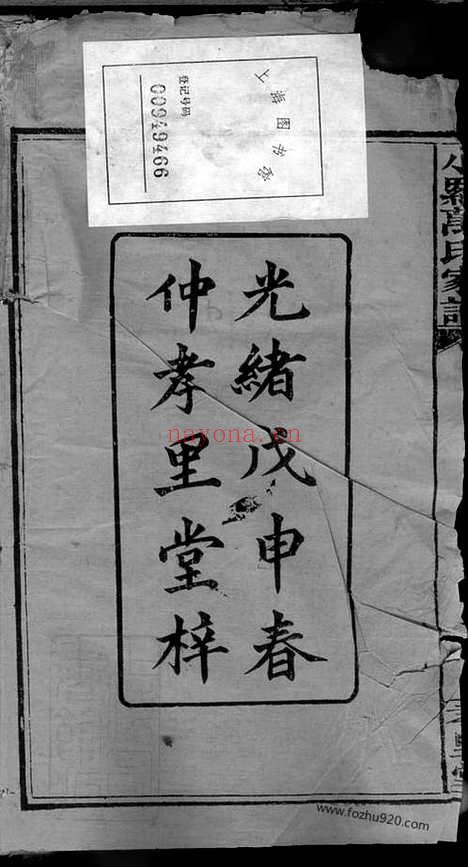 上海图书馆
登记号码
00949466
八羅萬氏家譜
光緒戊申春
仲孝里堂梓
nayona.cn
www.fozhu920.com